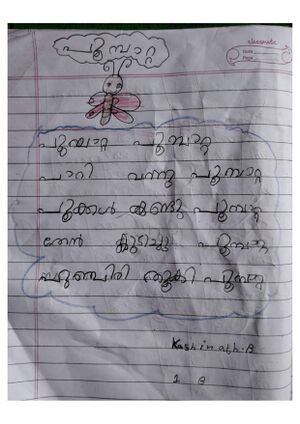 classmate
Date
Page
പൂമ്പാറ്റ
പൂമ്പാറ്റ പൂമ്പാറ്റ
പാറി വന്നു പൂമ്പാറ്റ
പൂക്കൾ കണ്ടു പൂമ്പാറ്റ
തേൻ കുടിച്ചു പൂമ്പാറ്റ
പുഞ്ചിരി തൂകി പൂമ്പാറ്റ
Kashinath.B
1 B